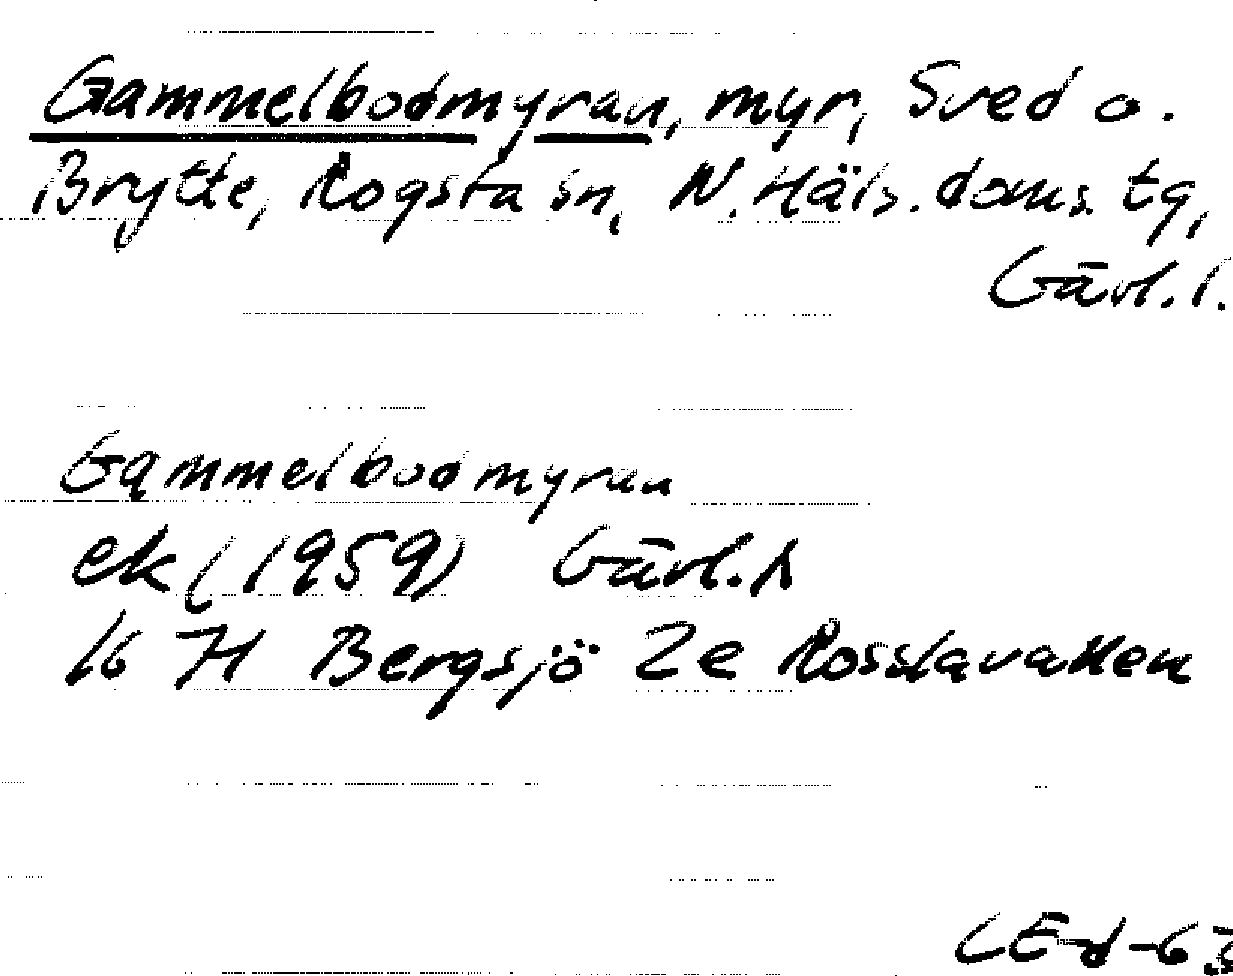 Gammelbodmyran, myr, Sved o.
Brytte, Rogsta sn, N. Häls. doms. tg,
Gävl. l.
Gammelbodmyran
ek (1959) Gävl. l
16 H Bergsjö 2e Rosslavallen
CE-d-63